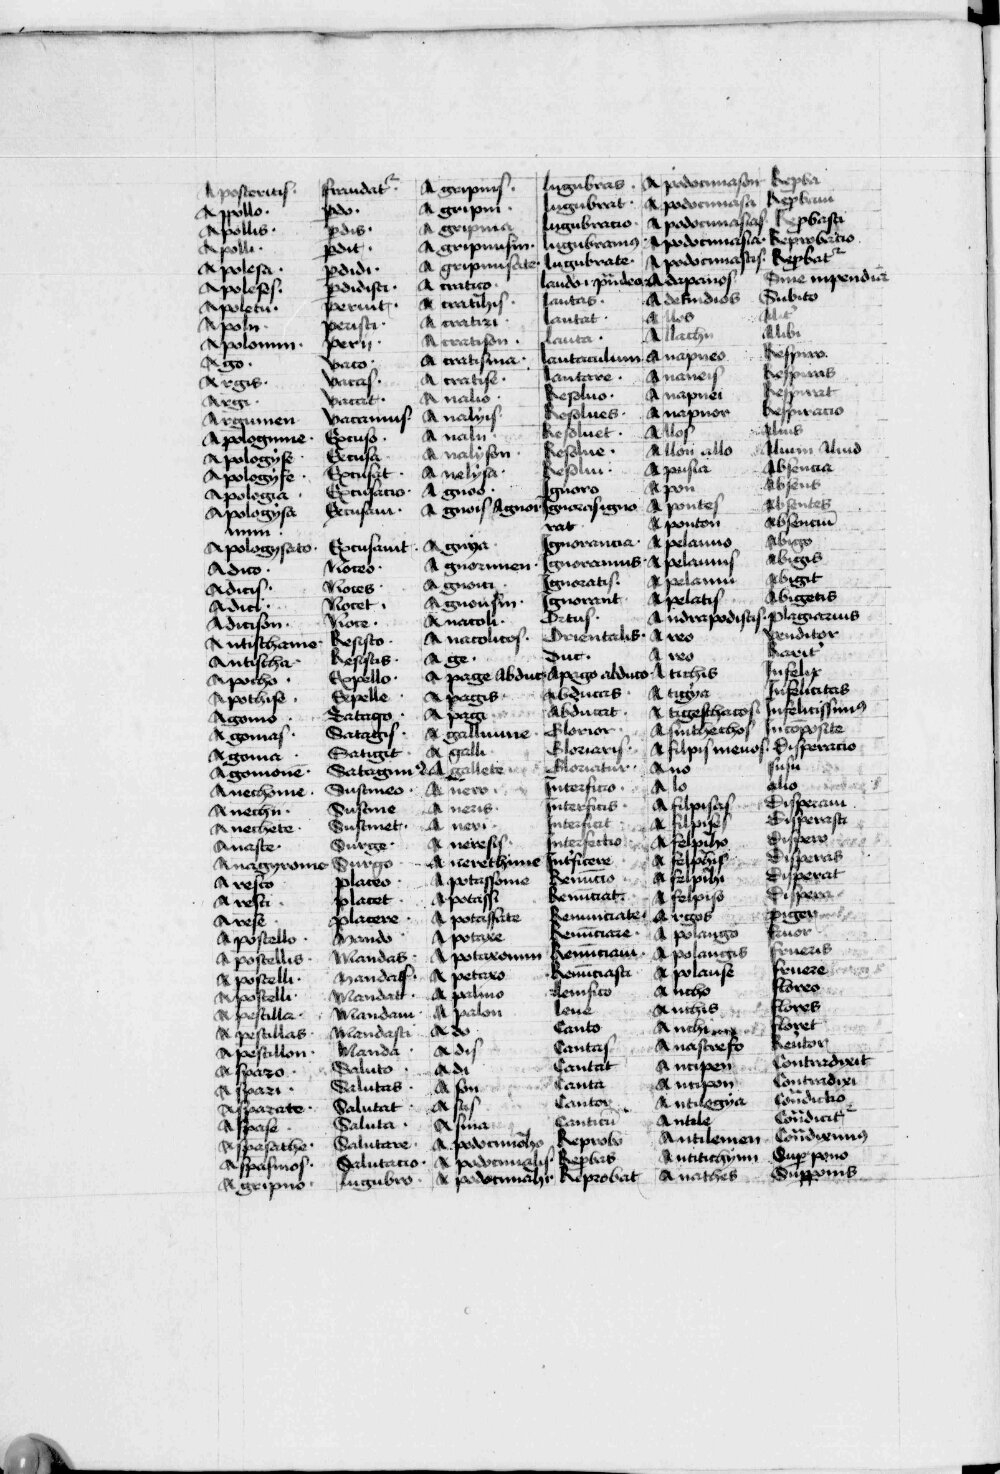 A posteritis · fraudat᷑ · A gripnis · lugubras · A podocimason Rep̱ba
A pollo · ꝑdo · A gripni · lugubrat · A podocimasa Rep̱baui
A pollis · ꝑdis · A gripnia lugubracio · A podocimasas · Rep̱basti
A polli · ꝑdit · A gripnusin · lugubramꝰ · A podocimasia · Reprobacio
A polesa · ꝑdidi · A gripnusate · lugubrate · A podocimastis · Rep̱bat᷑
A poleses · ꝑdidisti · A cratico · A dapanos Sine inpendia
A poletu · periuit · A cratihis · lautas · A dekindios Subito
A polu · peristi · A cratizi · lautat · A llos
A polomin · perij · A cratison · lauta · A llachu alibi
A rgo · vaco · A cratisma · lautaculum A napneo Respiro
A rgis · vacas · A cratise · lautare · A napneis Respiras
A rgi · vacat · A nalio · Resoluo · A napnei Respirat
A rgumen vacamus · A nalyis Resolues · A napnor Respiracio
A pologume · Excuso · A nalu · Resoluet · A llos alius
A pologyse · Excusa · A nalyson · Resolue · A llon allo Alium aliud
A pologyse · Excusat · A nelysa · Resolui · A pusia Absencia
A pologia · Excusacio · A gnoo · Ignoro A pon absens
A pologysa Excusaui · A gnois Agnoi Ignoras igno A pontes absentes
min · rat · A ponton absenciū
A pologysato · Excusauit · A gnya · Ignorancia · A pelauno abigo
A dico · Noceo · A gnorumen · Ignoramus · A pelaunis abigis
A dicis · Noces · A gnoiti · Ignoratis · A pelauni abigit
A dici · Nocet · A gnousin · Ignorant · A pelatis abigetis
A dicison · Noce · A nacoli · Ortus · A ndrapodistis · plagiarius
A ntisthame · Resisto · A nacolicos · Orientalis · A reo venditor
A ntistha · Resistis · A ge · Duc · A reo
A potho · Expello · A page abduc · Apago abduco · A tichis Infelix
A pothise · Expelle · A pagis · abducas · A tigya Infelicitas
A gomo · Satago · A pagi · abducat · A tigesthatos · Infelicissimꝰ
A gomas · Satagis · A galliume · Glorior · A sinthechos Incōposite
A goma · Satagit · A galli · Gloriaris · A filpismenos · Disperacio
A gomonē · Satagim᷑ · A gallete · Gloriatur · A no susu
A nechome · Sustineo · A nero · Interficio · A lo alio
A nechu · Sustine · A neris · Interficis · A filpisas Disperaui
A nechete · Sustinet · A neri · Interficit · A filpises Disperasti
A naste · Surge · A neresis · Interfectio · A felpiho Dispero
A nagyrome Surgo · A nerethime Int̄ficere · A felphis Disperas
A resco placeo · A potassome Renūcio · A felpihi Disperat
A resti · placet · A potassi Renūciat · A felpiso Dispera
A rese · placere · A potassate Renunciate · A rgos pigeri
A postello · Mando · A potaxe Renūciare · A polaugo fruor
A postellis · Mandas · A potaxomin Renūciaui · A polaugis frueris
A postelli · Mandas · A petaxo Renūciasti A polause fruere
A postelli · Mandat · A palino Lenifico A ntho floreo
A pestilla · Mandaui · A palon lene A nthis flores
A pestillas · Mandasti · A do · Canto A nthi floret
A pestillon · Manda · A dis Cantas A nastrefo
A spazo · Saluto · A di Cantat A ntipen Contradixit
A spazi · Salutas · A son Canta A ntipon Contradixi
A spazate · Salutat · A sas Cantor A ntilegya
A spase · Saluta · A sma Canticū A ntile
A spasathe · Salutare · A podocimoho Reprobo A ntilemen
A spasmos · Salutacio · A podocimalis · Rep̱bas A ntitichymi Suppono
A gripno · lugubro · A podocimahi · Reprobat A nathes Supponis